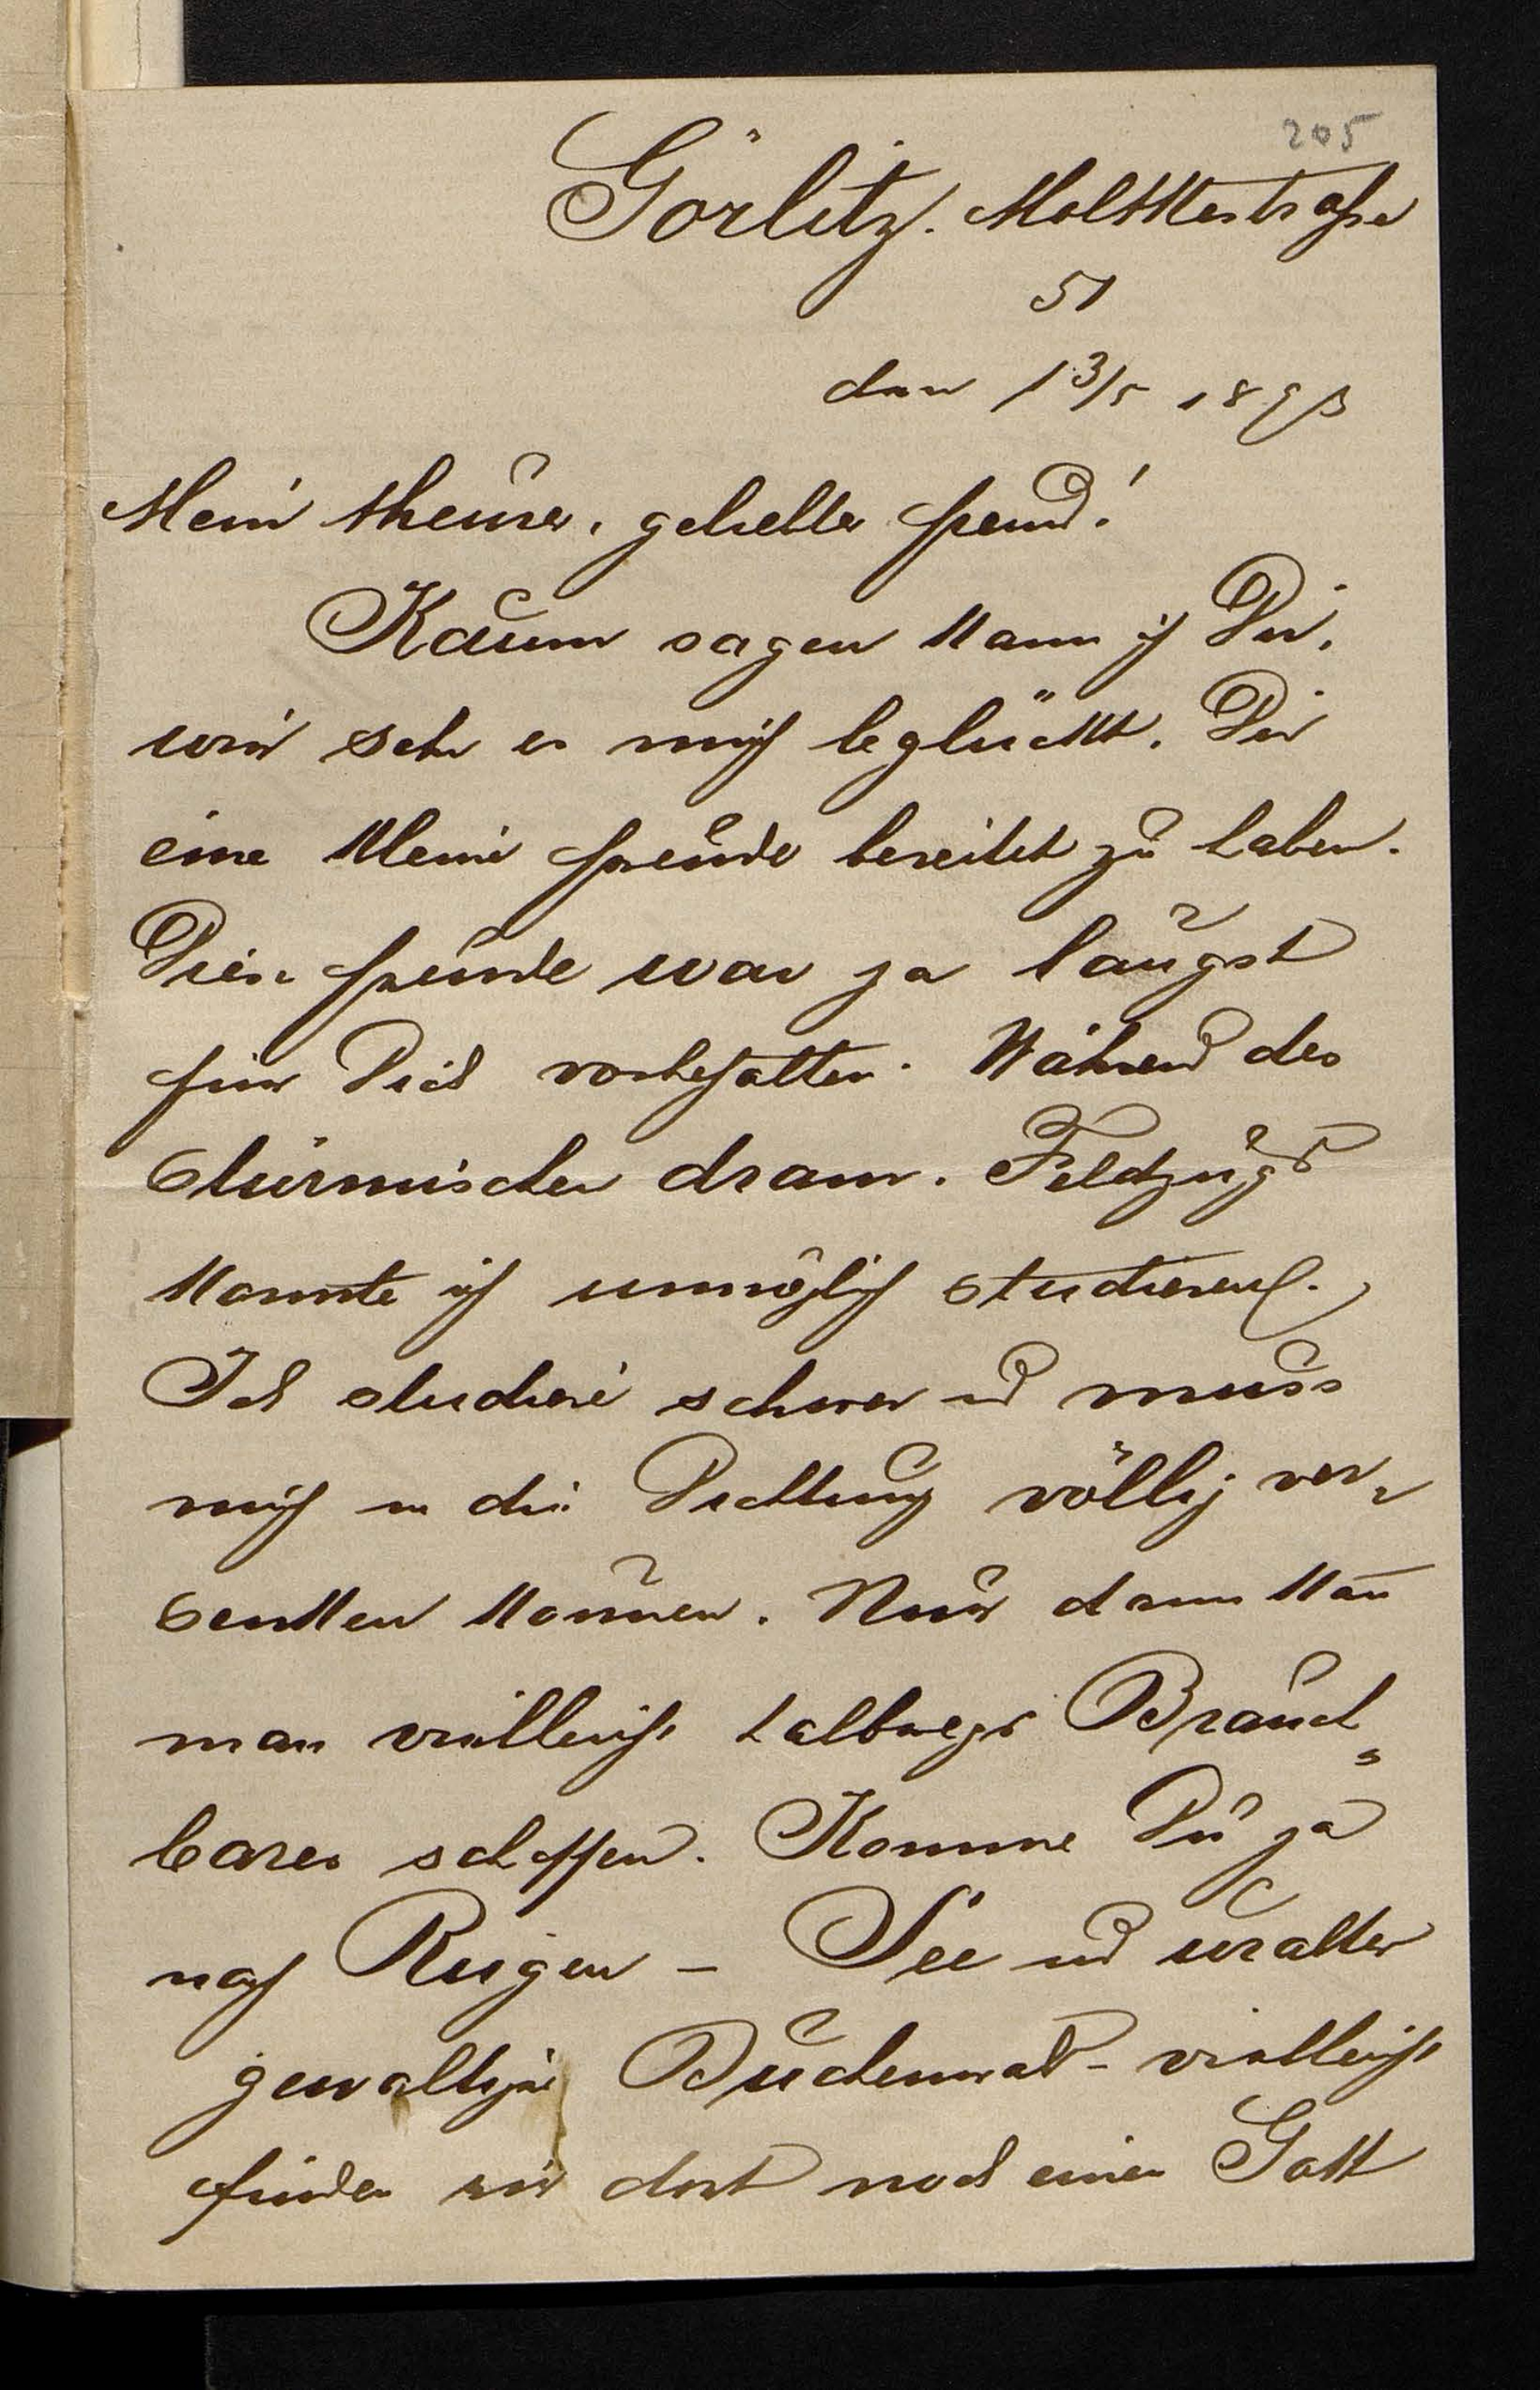 205
Görlitz. Molktestraße
51
den 13/5 1893
Mein theurer, geliebter Freund!
Kaum sagen kann ich Dir,
wie sehr es mich beglückt, Dir
eine kleine Freude bereitet zu haben.
Diese Freude war ja längst
für Dich vorbehalten. Während des
stürmischen dram. Feldzugs
konnte ich unmöglich studieren.
Ich studiere schwer und muss
mich in die Dichtung völlig ver-
senken können. Nur dann kañ
man vielleicht halbwegs Brauch-
bares schaffen. Komme Du ja
nach Rügen – See und uralter
gewaltiger Buchenwald – vielleicht
finden wir dort noch einen Gott